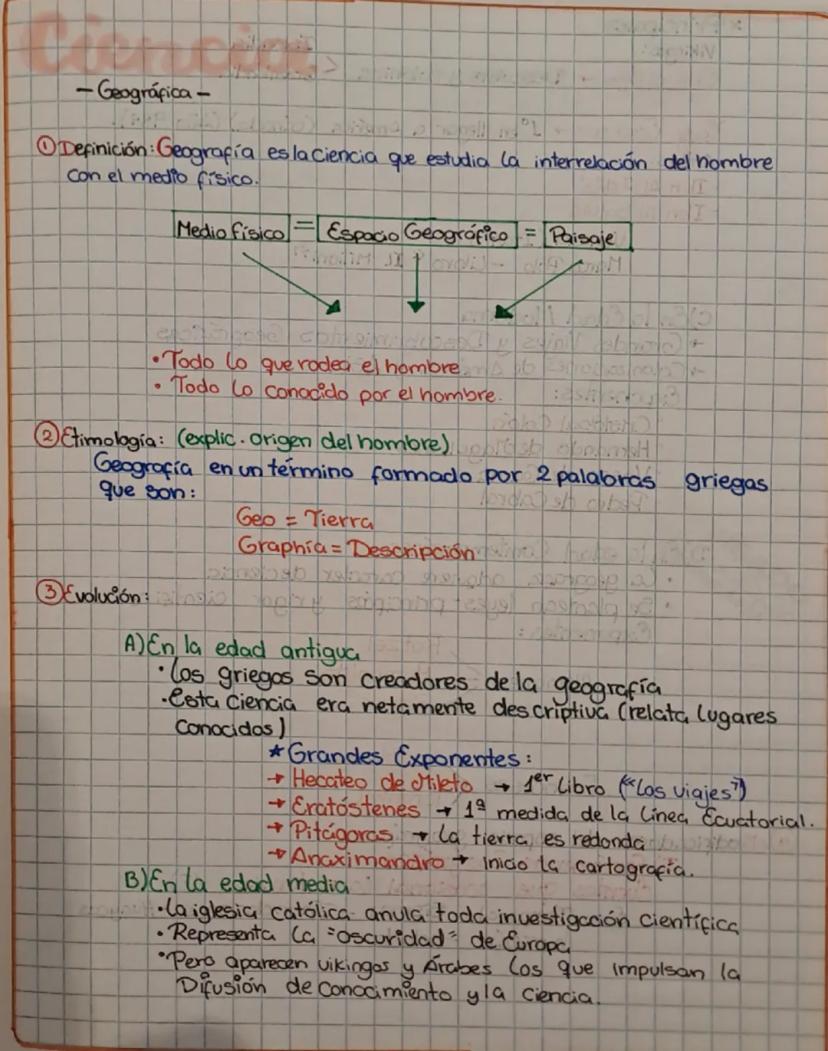 Ciencia
- Geográfica -
① Definición: Geografía es la ciencia que estudia la interrelación del hombre
con el medio físico.
Medio físico = Espacio Geográfico = Paisaje
• Todo lo que rodea el hombre
• Todo lo conocido por el hombre.
② Etimología: (explic. origen del nombre)
Geografía en un término formado por 2 palabras griegas
que son:
Geo = Tierra
Graphía = Descripción
③ Evolución:
A) En la edad antigua
• Los griegos son creadores de la geografía
• Esta ciencia era netamente descriptiva (relata lugares
conocidos)
* Grandes Exponentes:
→ Hecateo de Mileto → 1er Libro ("Los viajes")
→ Eratóstenes → 1ª medida de la Línea Ecuatorial.
→ Pitágoras → La tierra es redonda
→ Anaximandro → inicio la cartografía.
B) En la edad media
• La iglesia católica anula toda investigación científica
• Representa la "oscuridad" de Europa
• Pero aparecen vikingos y Árabes los que impulsan la
Difusión de conocimiento y la ciencia.